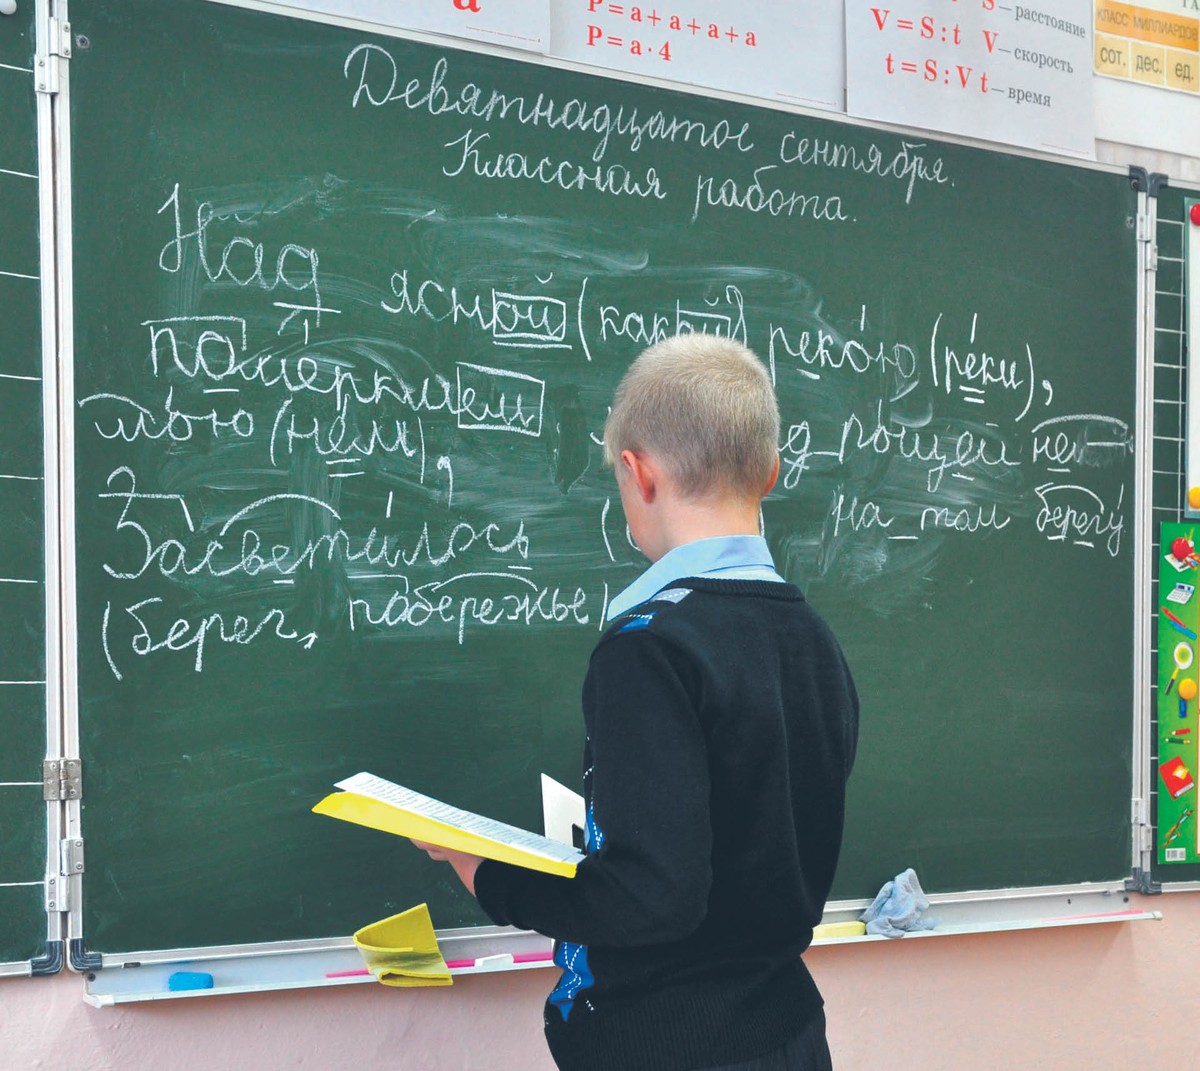 а
P = a + a + a + a
P = a · 4
S — расстояние
V = S : t V — скорость
t = S : V t — время
КЛАСС МИЛЛИАРДОВ
сот. дес. ед.
Девятнадцатое сентября.
Классная работа.
Над ясной (какой) рекою (реки),
померкшем
тью (нем), д рощей нем
Засветилось на том берегу
(берег, побережье)